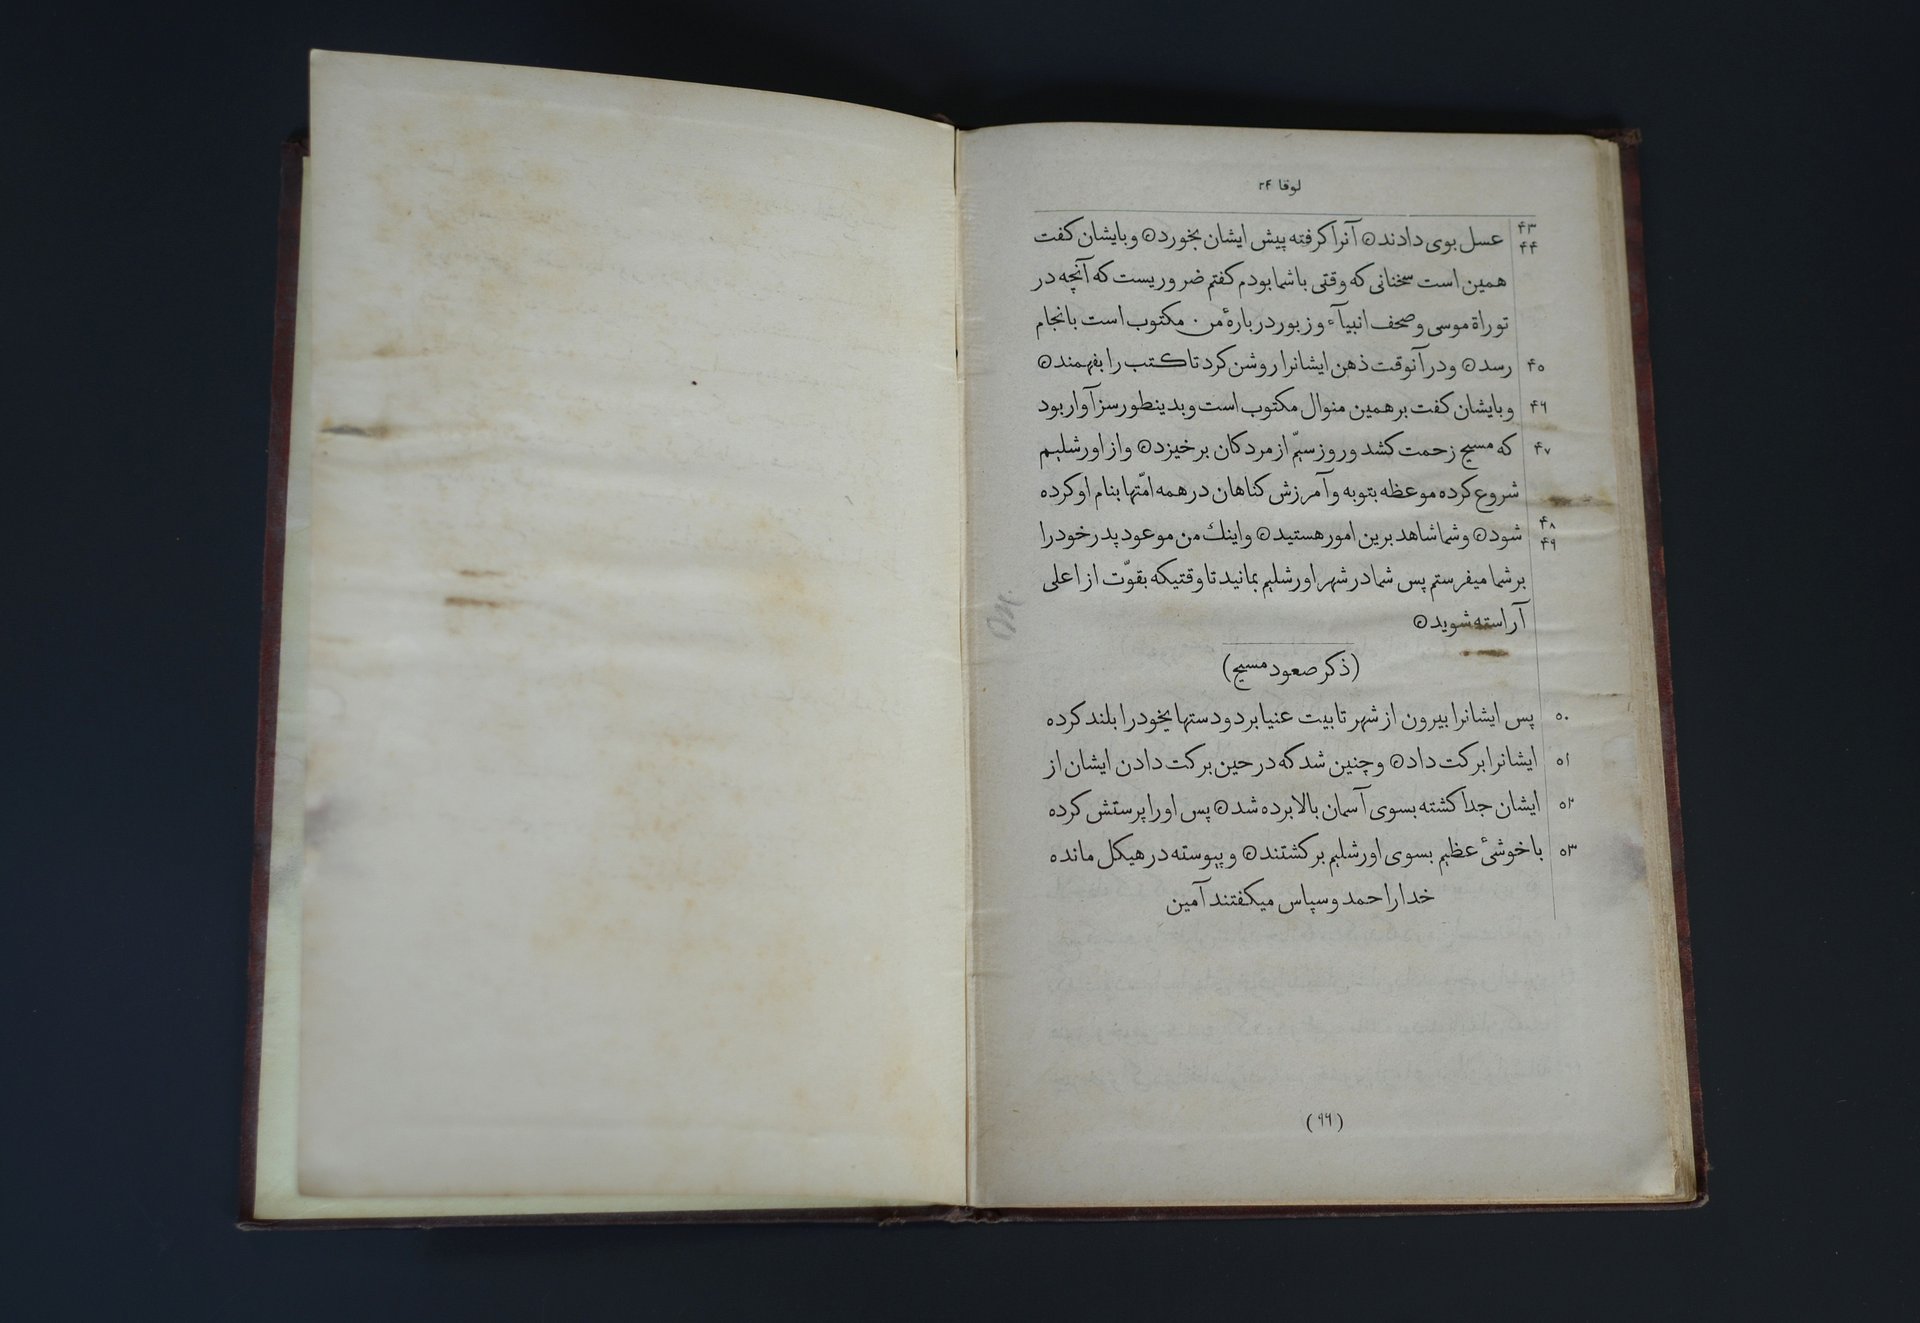 لوقا ۲۴
۴۳ عسل بوی دادند۞ آنرا گرفته پیش ایشان بخورد۞ و بایشان کفت
۴۴
همین است سخنانی که وقتی با شما بودم کفتم ضروریست که آنچه در
توراة موسی و صحف انبیآء و زبور دربارهٔ من مکتوب است بانجام
۴۵ رسد۞ و در آنوقت ذهن ایشانرا روشن کرد تا کتب را بفهمند۞
۴۶ و بایشان کفت بر همین منوال مکتوب است و بدینطور سزآوار بود
۴۷ که مسیح زحمت کشد و روز سیّم از مردکان برخیزد۞ و از اورشلیم
شروع کرده موعظه بتوبه و آمرزش کناهان در همه امّتها بنام او کرده
۴۸ شود۞ و شما شاهد برین امور هستید۞ و اینك من موعود پدر خود را
۴۹
بر شما میفرستم پس شما در شهر اورشلیم بمانید تا وقتیکه بقوّت از اعلی
آراسته شوید۞
(ذکر صعود مسیح)
۵۰ پس ایشانرا بیرون از شهر تا بیت عنیا برد و دستهایخود را بلند کرده
۵۱ ایشانرا برکت داد۞ و چنین شد که در حین برکت دادن ایشان از
۵۲ ایشان جدا کشته بسوی آسمان بالا برده شد۞ پس او را پرستش کرده
۵۳ با خوشیٔ عظیم بسوی اورشلیم برکشتند۞ و پیوسته در هیکل مانده
خدا را حمد و سپاس میکفتند آمین
(۹۶)